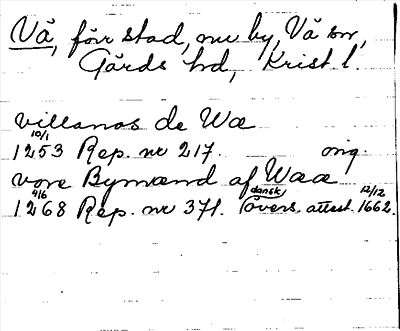 Vä, förr stad, nu by, Vä sn,
Gärds hd, Krist. l.
villanos de Wæ
10/1
1253 Rep. nr 217. orig.
vore Bymænd af Waæ
4/6 dansk 12/12
1268 Rep. nr 371. övers. attest. 1662.